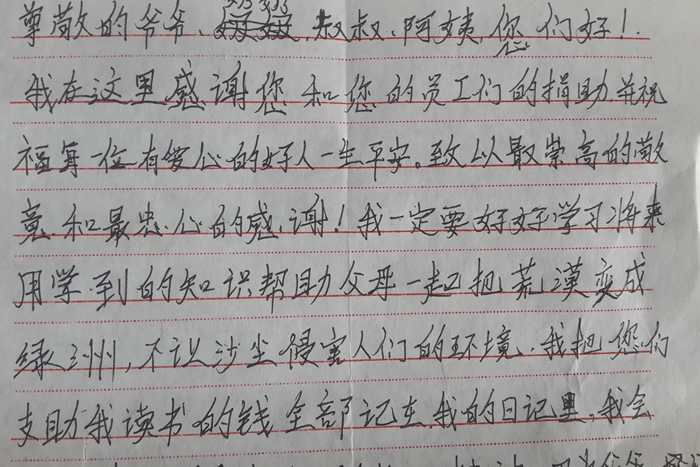 尊敬的爷爷、叔叔、阿姨,您们好!
我在这里感谢您和您的员工们的捐助,并祝
福每一位有爱心的好人一生平安。致以最崇高的敬
意和最忠心的感谢!我一定要好好学习将来
用学到的知识帮助父母一起把荒漠变成
绿洲,不让沙尘侵害人们的环境。我把您们
支助我读书的钱全部记在我的日记里,我会